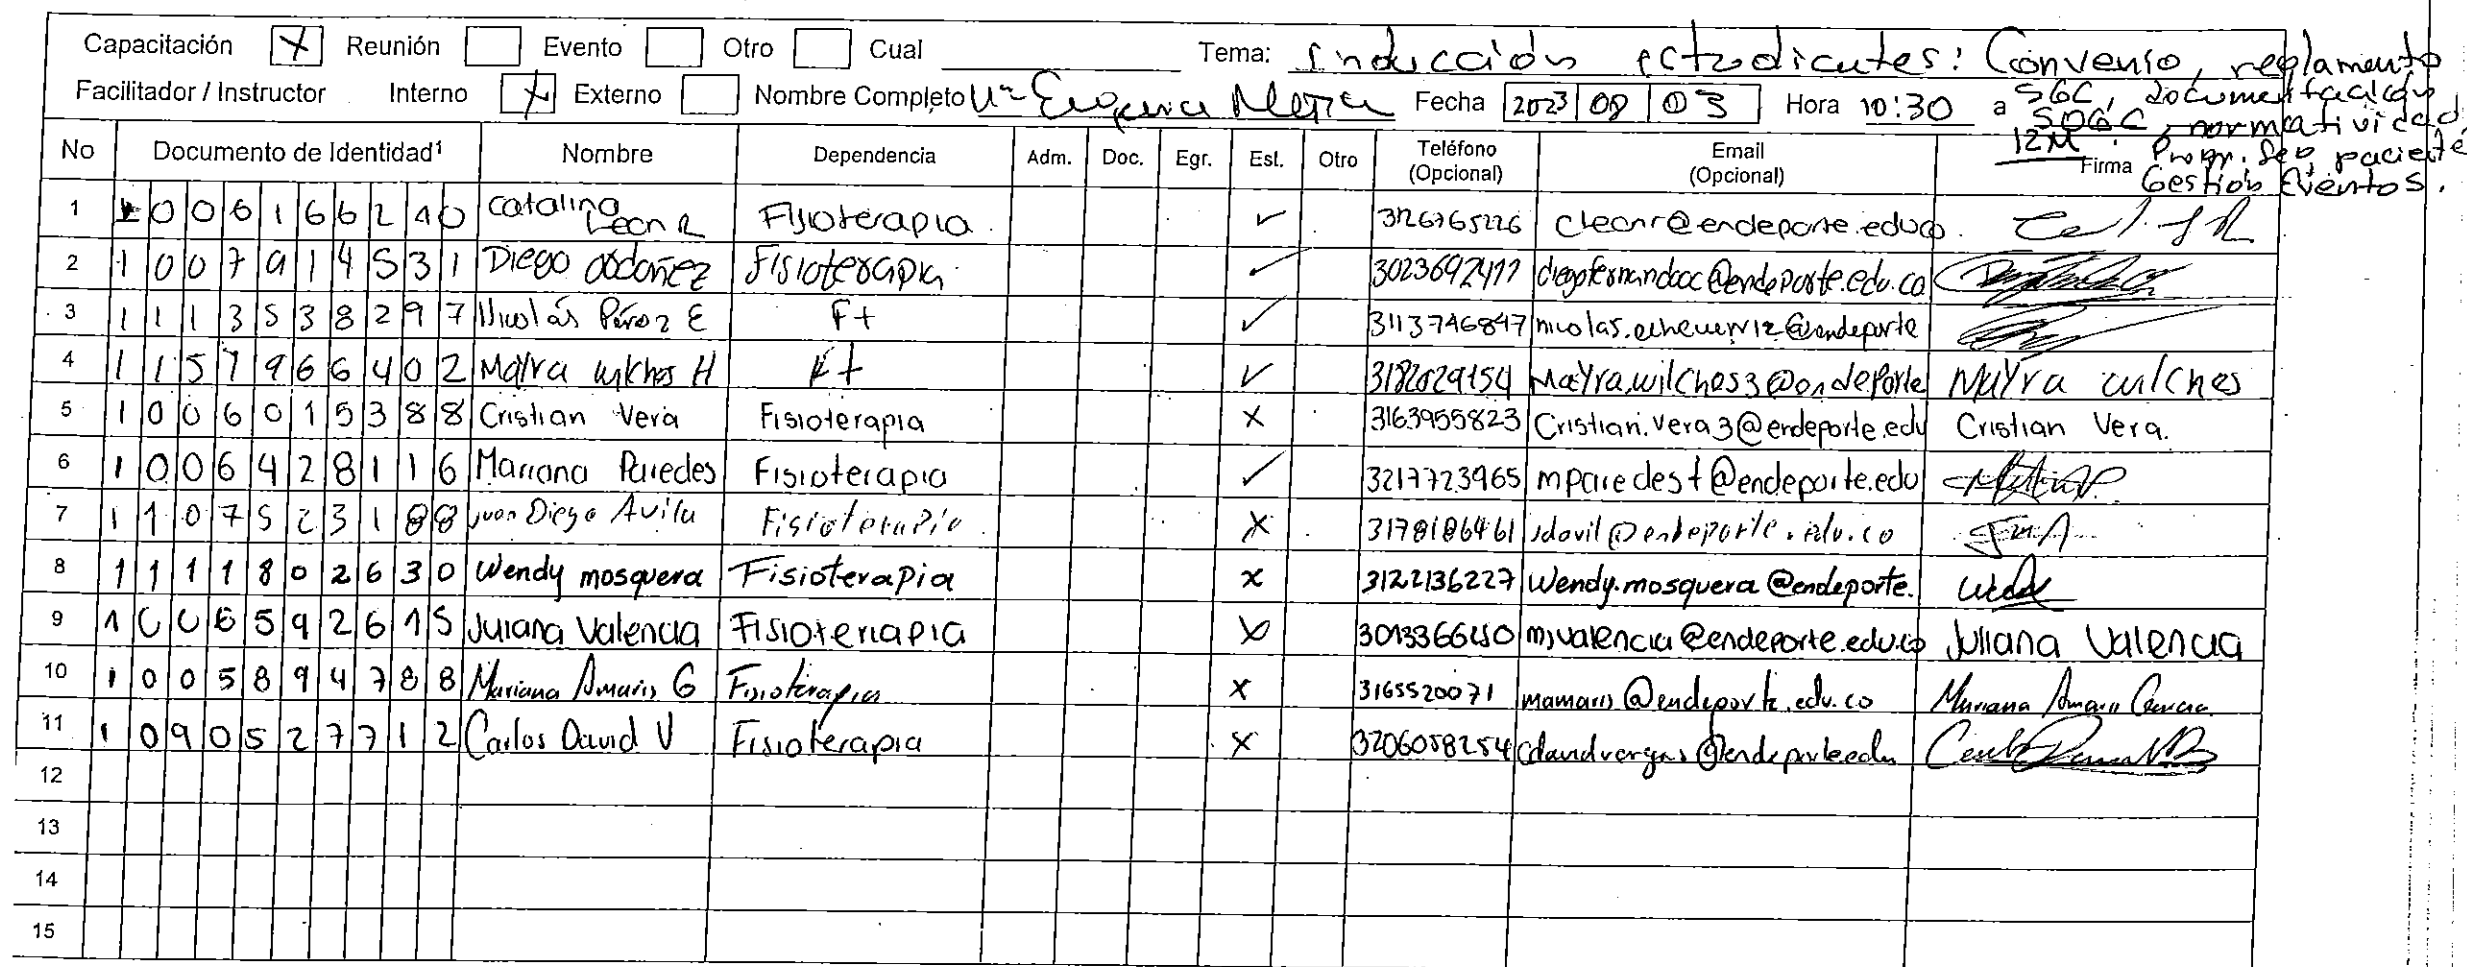 Capacitación X Reunión Evento Otro Cual Tema: Inducción estudiantes: Convenio, reglamento
Facilitador / Instructor Interno X Externo Nombre Completo Mª Eugenia Fecha 2023 08 03 Hora 10:30 a 12M
SGC, documentación
SOGC, normatividad
Progr. Seg. paciente
Gestión Eventos.
No Documento de Identidad¹ Nombre Dependencia Adm. Doc. Egr. Est. Otro Teléfono (Opcional) Email (Opcional) Firma
1 1006166240 Catalina Leon R Fisioterapia ✓ 3126765226 cleonr@endeporte.edu.co
2 1007914531 Diego Ordoñez Fisioterapia ✓ diegofernandooc@endeporte.edu.co
3 1113538297 Nicolás Pérez E Ft ✓ 3113746847
4 1157966402 Mayra wilches H Ft ✓ 3182029154 Mayra.wilches3@endeporte Mayra wilches
5 1006015388 Cristian Vera Fisioterapia X 3163955823 Cristian.vera3@endeporte.edu Cristian Vera.
6 1006428116 Mariana Paredes Fisioterapia ✓ 3217723965 mparedest@endeporte.edu
7 1107523188 Juan Diego Avila Fisioterapia X 3178186461 jdavil@endeporte.edu.co
8 1111802630 Wendy mosquera Fisioterapia x 3122136227 Wendy.mosquera@endeporte.
9 1006592615 Juliana Valencia Fisioterapia X 3013366450 mjvalencia@endeporte.edu.co Juliana Valencia
10 1005894788 Mariana Amaris G Fisioterapia x 3165520071 mamaris@endeporte.edu.co Mariana Amaris Garcia
11 1090527712 Carlos David V Fisioterapia X 3206058254 cdavidvargas@endeporte.edu
12
13
14
15